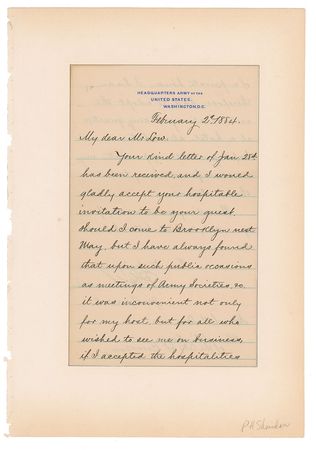 HEADQUARTERS ARMY OF THE
UNITED STATES.
WASHINGTON, D.C.
February 2d 1884.
My dear Mr Low.
Your kind letter of Jan 28th
has been received, and I would
gladly accept your hospitable
invitation to be your guest
should I come to Brooklyn next
May, but I have always found
that upon such public occasions
as meetings of Army Societies, &c
it was inconvenient not only
for my host, but for all who
wished to see me on business,
if I accepted the hospitalities
P H Sheridan